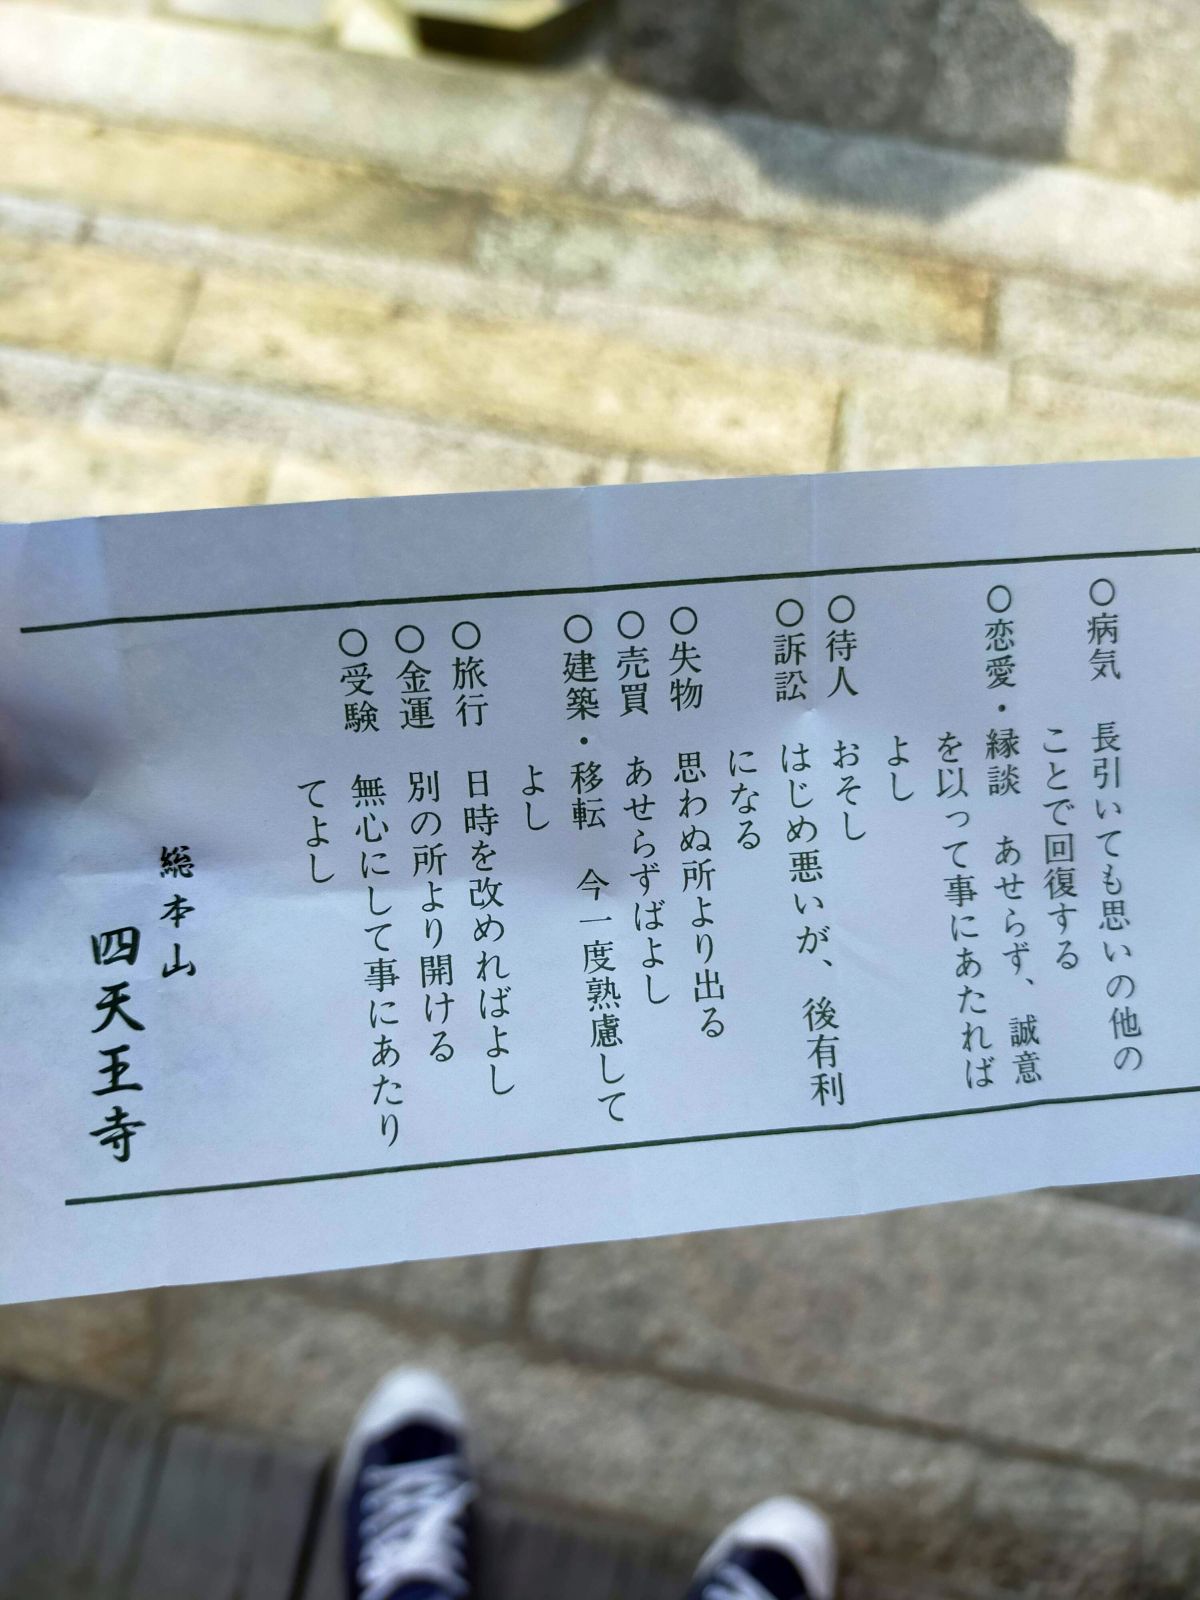 ○病気　長引いても思いの他の
ことで回復する
○恋愛・縁談　あせらず、誠意
を以って事にあたれば
よし
○待人　おそし
○訴訟　はじめ悪いが、後有利
になる
○失物　思わぬ所より出る
○売買　あせらずばよし
○建築・移転　今一度熟慮して
よし
○旅行　日時を改めればよし
○金運　別の所より開ける
○受験　無心にして事にあたり
てよし
総本山
四天王寺